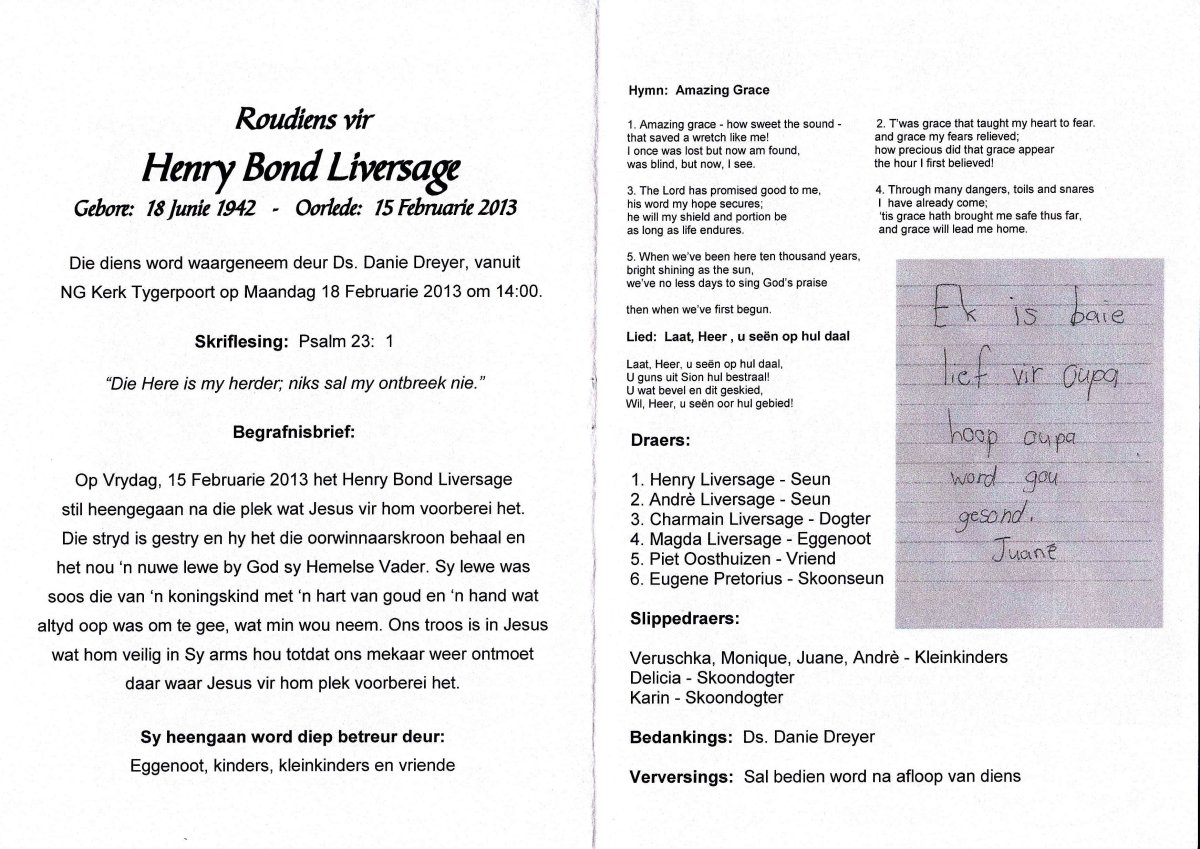 Roudiens vir
Henry Bond Liversage
Gebore: 18 Junie 1942 - Oorlede: 15 Februarie 2013
Die diens word waargeneem deur Ds. Danie Dreyer, vanuit
NG Kerk Tygerpoort op Maandag 18 Februarie 2013 om 14:00.
Skriflesing: Psalm 23: 1
“Die Here is my herder; niks sal my ontbreek nie.”
Begrafnisbrief:
Op Vrydag, 15 Februarie 2013 het Henry Bond Liversage
stil heengegaan na die plek wat Jesus vir hom voorberei het.
Die stryd is gestry en hy het die oorwinnaarskroon behaal en
het nou ‘n nuwe lewe by God sy Hemelse Vader. Sy lewe was
soos die van ‘n koningskind met ‘n hart van goud en ‘n hand wat
altyd oop was om te gee, wat min wou neem. Ons troos is in Jesus
wat hom veilig in Sy arms hou totdat ons mekaar weer ontmoet
daar waar Jesus vir hom plek voorberei het.
Sy heengaan word diep betreur deur:
Eggenoot, kinders, kleinkinders en vriende
Hymn: Amazing Grace
1. Amazing grace - how sweet the sound -
that saved a wretch like me!
I once was lost but now am found,
was blind, but now, I see.
2. T’was grace that taught my heart to fear.
and grace my fears relieved;
how precious did that grace appear
the hour I first believed!
3. The Lord has promised good to me,
his word my hope secures;
he will my shield and portion be
as long as life endures.
4. Through many dangers, toils and snares
I have already come;
‘tis grace hath brought me safe thus far,
and grace will lead me home.
5. When we’ve been here ten thousand years,
bright shining as the sun,
we’ve no less days to sing God’s praise
then when we’ve first begun.
Lied: Laat, Heer , u seën op hul daal
Laat, Heer, u seën op hul daal,
U guns uit Sion hul bestraal!
U wat bevel en dit geskied,
Wil, Heer, u seën oor hul gebied!
Ek is baie
lief vir oupa
hoop oupa
word gou
gesond.
Juanè
Draers:
1. Henry Liversage - Seun
2. Andrè Liversage - Seun
3. Charmain Liversage - Dogter
4. Magda Liversage - Eggenoot
5. Piet Oosthuizen - Vriend
6. Eugene Pretorius - Skoonseun
Slippedraers:
Veruschka, Monique, Juane, Andrè - Kleinkinders
Delicia - Skoondogter
Karin - Skoondogter
Bedankings: Ds. Danie Dreyer
Verversings: Sal bedien word na afloop van diens